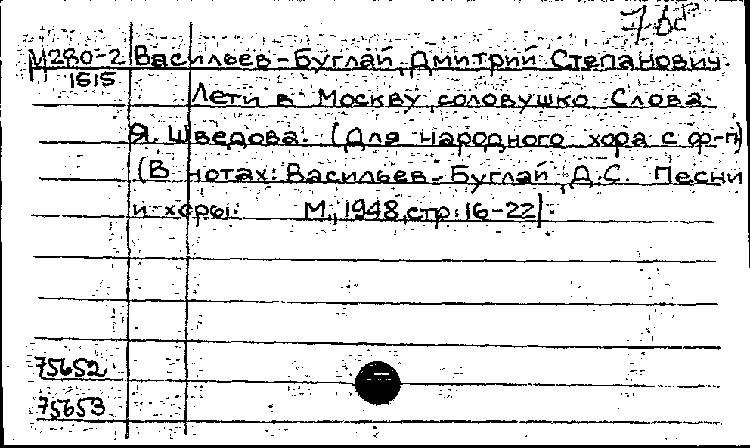 М280-2 Васильев-Буглай, Дмитрий Степанович.
1515
Лети в Москву, соловушко. Слова
Я. Шведова. (Для народного хора с ф-п)
(В нотах: Васильев-Буглай, Д.С. Песни
и хоры. М., 1948, стр. 16-22).
75652
75653